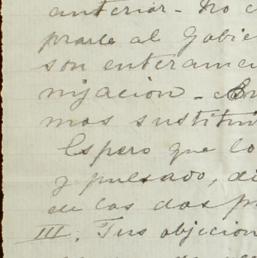 anterior. No c
prarle al Gobie
son enterame
nizacion - En
mos sustitui
Espero que lo
y pulsado, di
de las dos p
III. Tus objecion